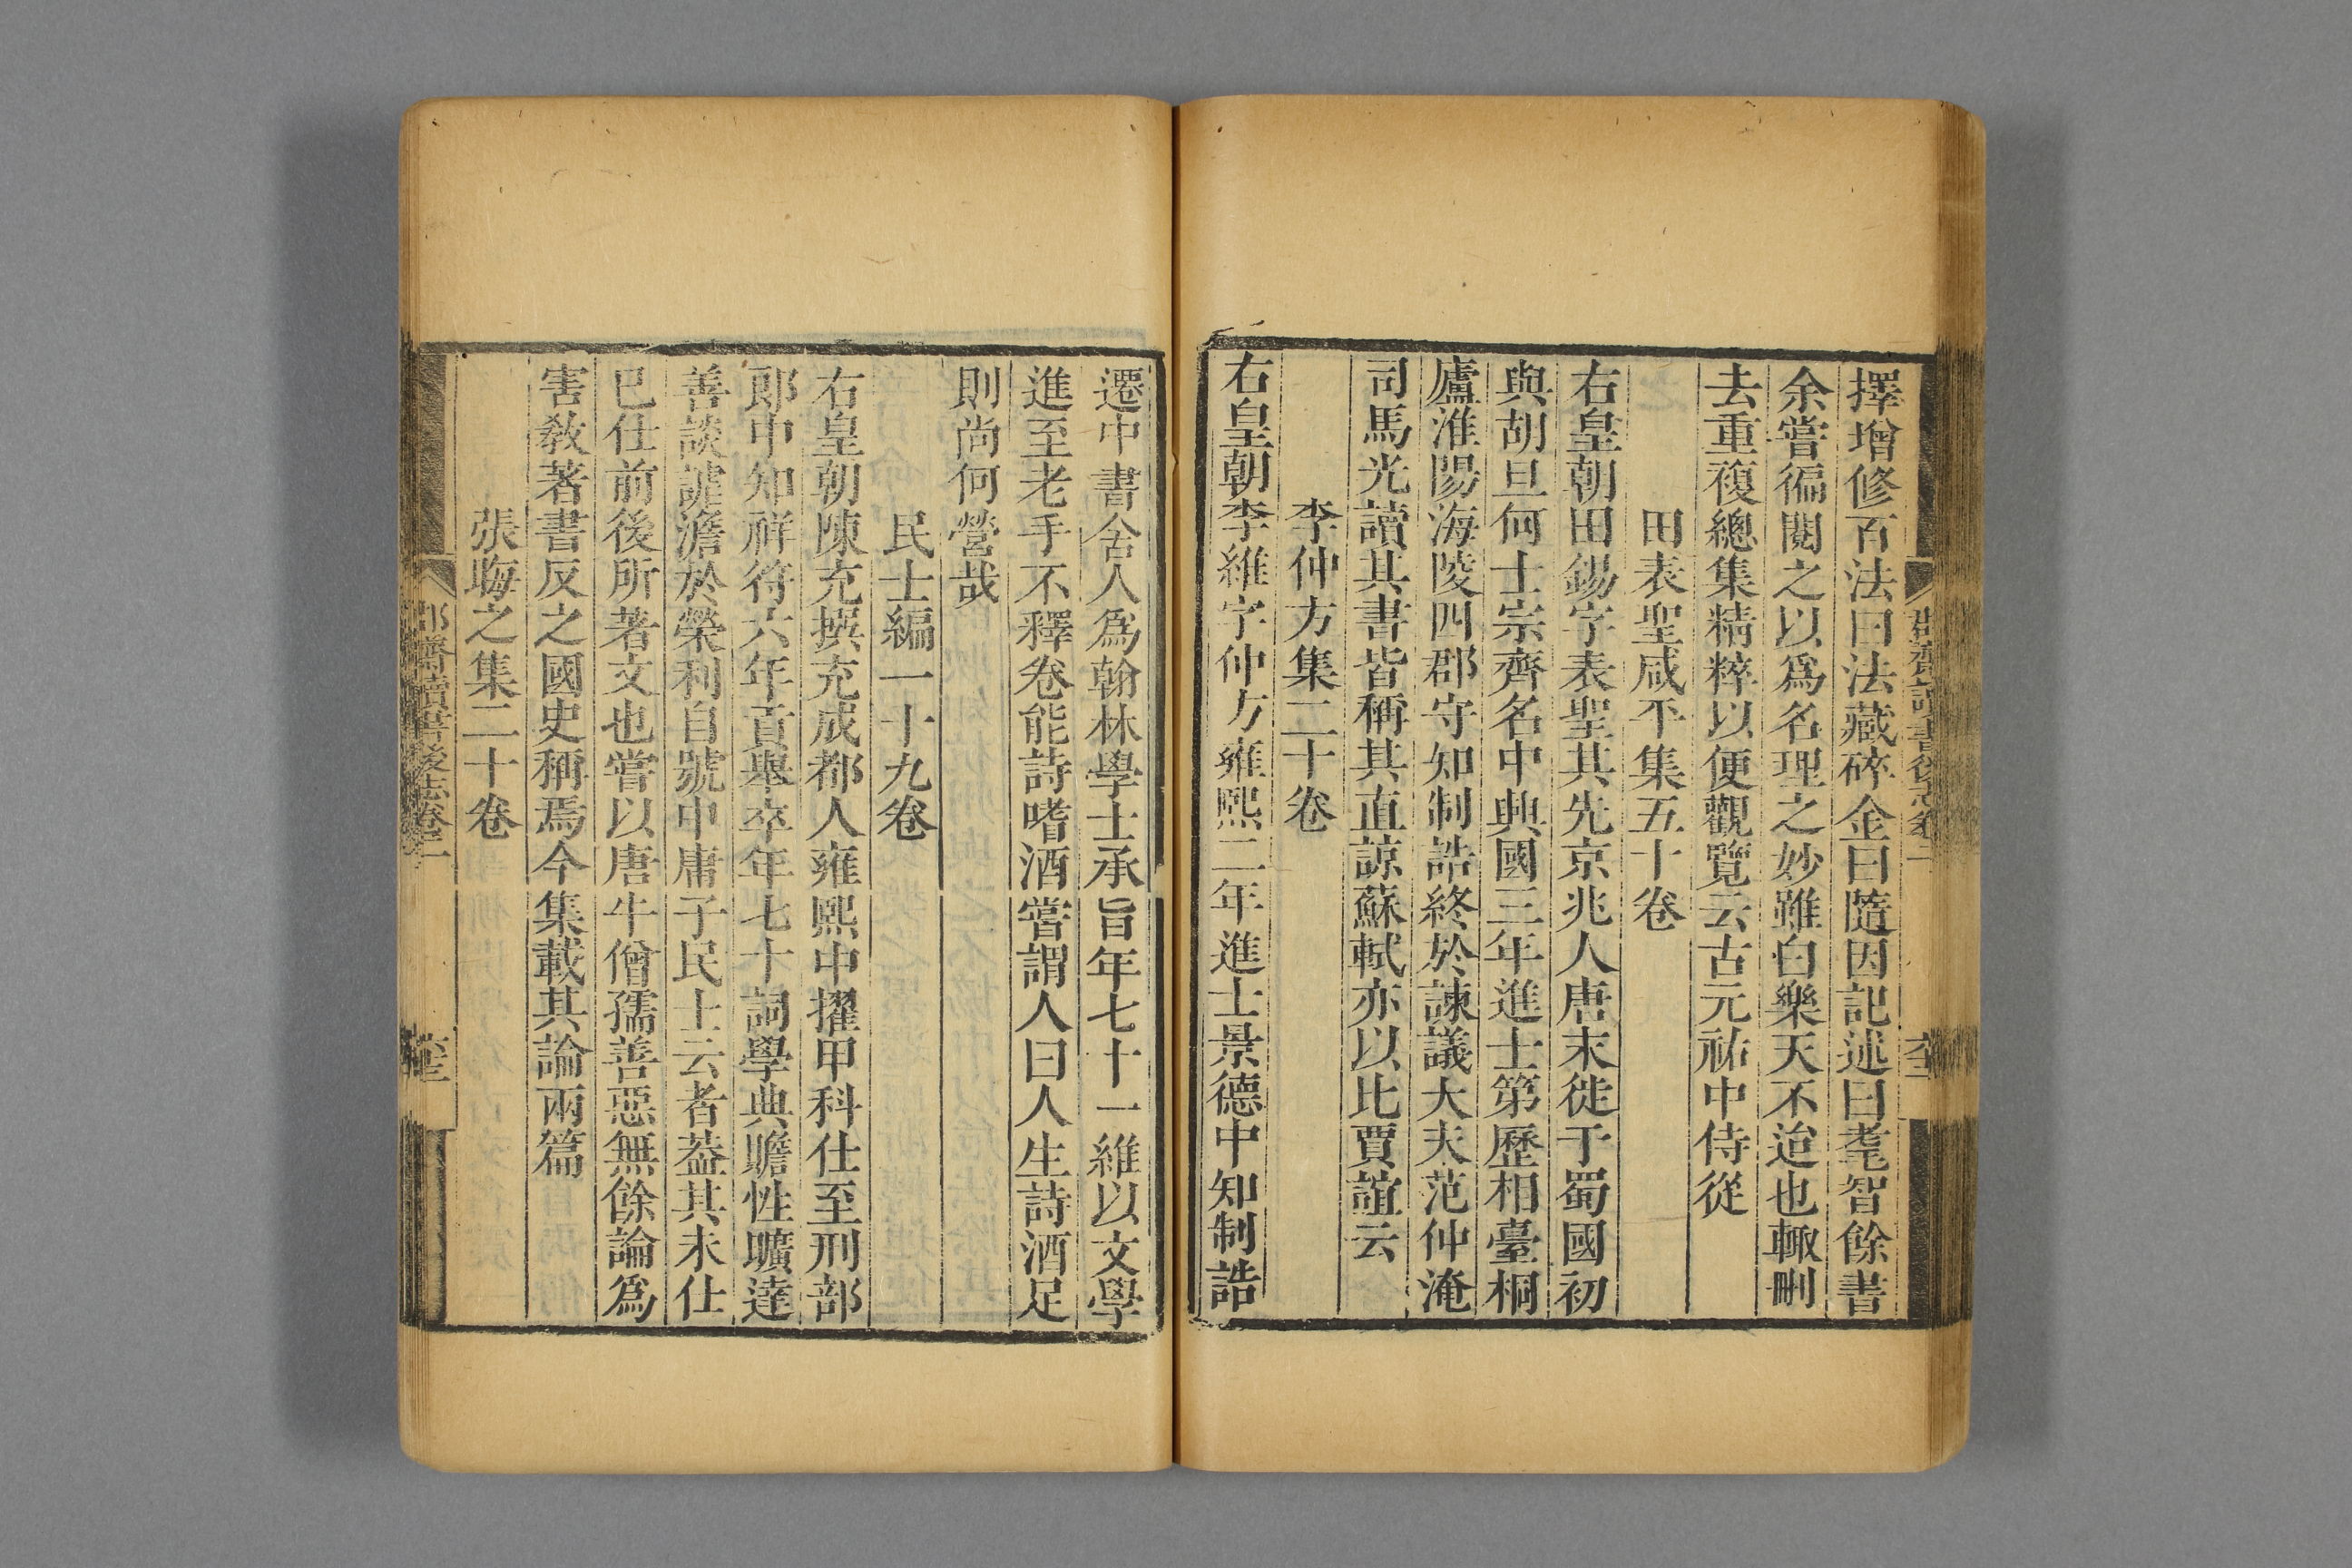 擇增修百法曰法藏碎金曰隨因記述曰耄智餘書
余嘗徧閱之以爲名理之妙雖白樂天不迨也輙刪
去重複總集精粹以便觀覽云古元祐中侍從
田表聖咸平集五十卷
右皇朝田錫字表聖其先京兆人唐末徙于蜀國初
與胡旦何士宗齊名中興國三年進士第歷相臺桐
廬淮陽海陵四郡守知制誥終於諫議大夫范仲淹
司馬光讀其書皆稱其直諒蘇軾亦以比賈誼云
李仲方集二十卷
右皇朝李維字仲方雍熙二年進士景德中知制誥
遷中書舍人爲翰林學士承旨年七十一維以文學
進至老手不釋卷能詩嗜酒嘗謂人曰人生詩酒足
則尚何營哉
民士編一十九卷
右皇朝陳充撰充成都人雍熙中擢甲科仕至刑部
郎中知祥符六年貢舉卒年七十詞學典贍性曠達
善談謔澹於榮利自號中庸子民士云者葢其未仕
已仕前後所著文也嘗以唐牛僧孺善惡無餘論爲
害敎著書反之國史稱焉今集載其論兩篇
張晦之集二十卷
郡齋讀書後志卷二